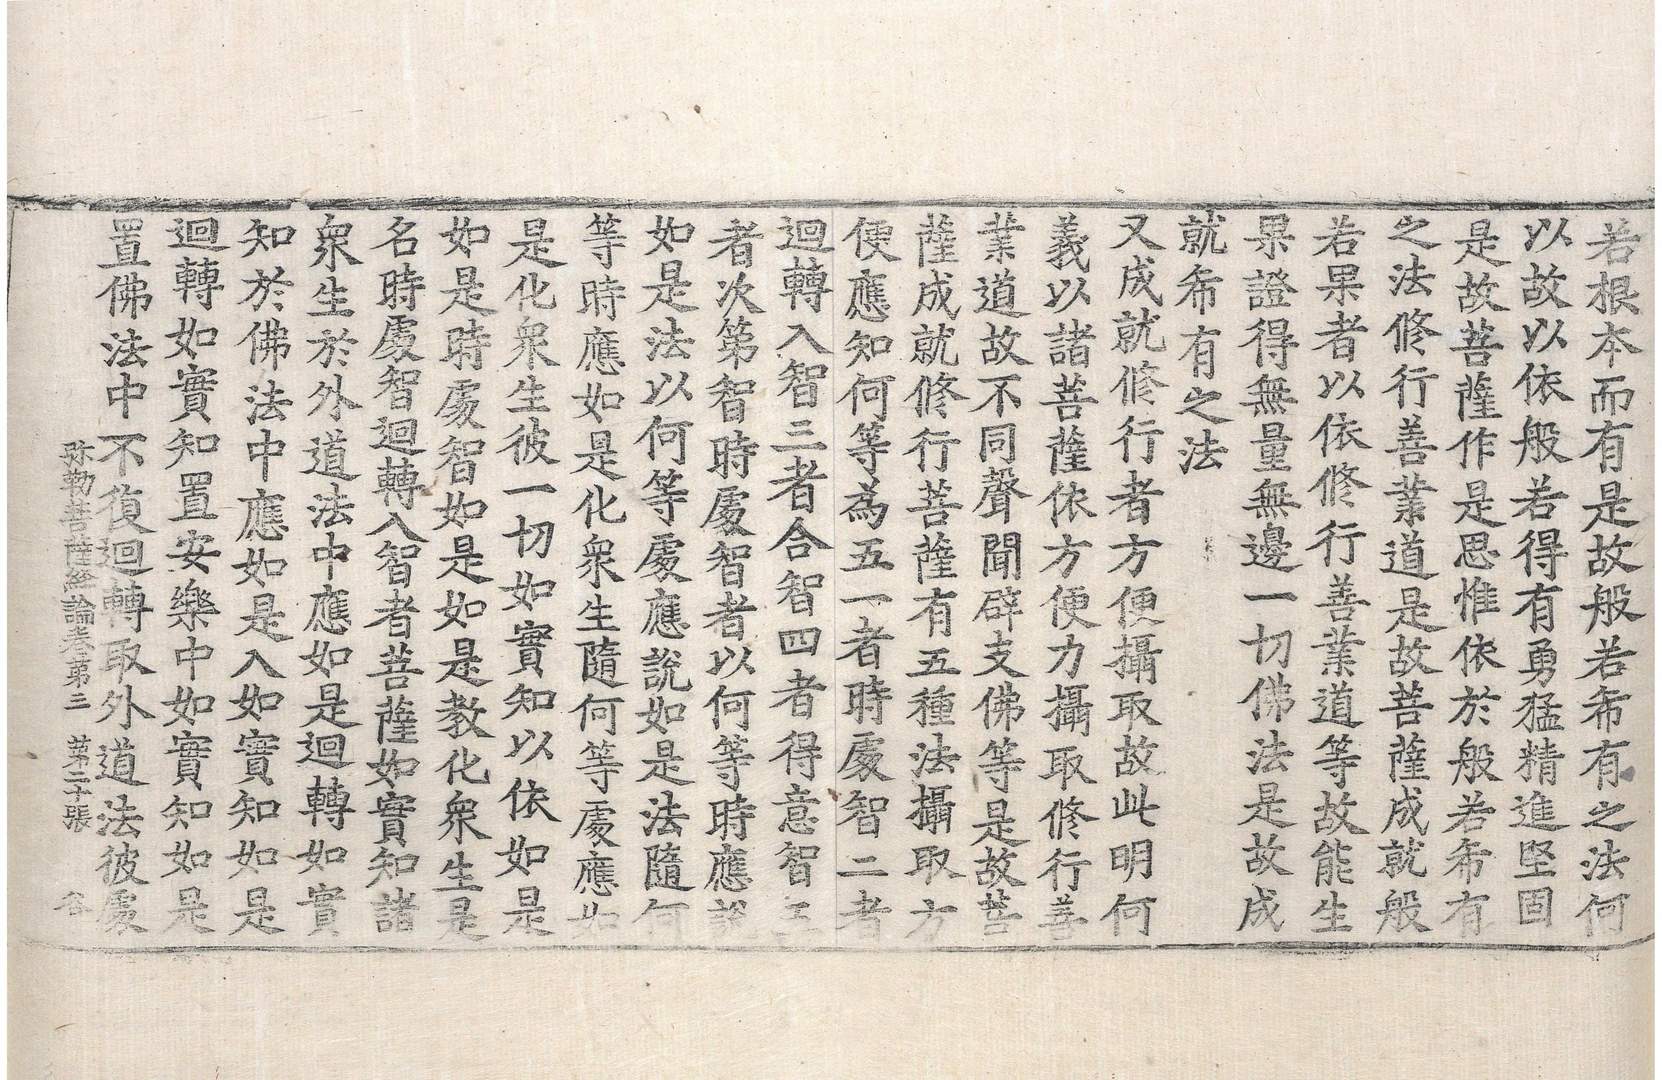 若根本而有是故般若希有之法何
以故以依般若得有勇猛精進堅固
是故菩薩作是思惟依於般若希有
之法修行善業道是故菩薩成就般
若果者以依修行善業道等故能生
果證得無量無邊一切佛法是故成
就希有之法
又成就修行者方便攝取故此明何
義以諸菩薩依方便力攝取修行善
業道故不同聲聞辟支佛等是故菩
薩成就修行菩薩有五種法攝取方
便應知何等為五一者時處智二者
迴轉入智三者合智四者得意智五
者次第智時處智者以何等時應說
如是法以何等處應說如是法隨何
等時應如是化衆生隨何等處應如
是化衆生彼一切如實知以依如是
如是時處智如是如是教化衆生是
名時處智迴轉入智者菩薩如實知諸
衆生於外道法中應如是迴轉如實
知於佛法中應如是入如實知如是
迴轉如實知置安樂中如實知如是
置佛法中不復迴轉取外道法彼處
弥勒菩薩経論卷第三 苐二十張 谷